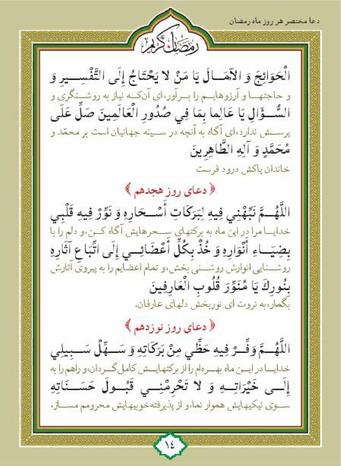 دعا مختصر هر روز ماه رمضان
رمضان کریم
الْحَوَائِجَ وَ الآمَالَ يَا مَنْ لا يَحْتَاجُ إِلَى التَّفْسِيرِ وَ
و حاجتها و آرزوهایم را برآور، ای آن‌که نیاز به روشنگری و
السُّؤَالِ يَا عَالِما بِمَا فِي صُدُورِ الْعَالَمِينَ صَلِّ عَلَى
پرسش ندارد، ای آگاه به آنچه در سینه جهانیان است بر محمّد و
مُحَمَّدٍ وَ آلِهِ الطَّاهِرِينَ
خاندان پاکش درود فرست
﴿ دعای روز هجدهم ﴾
اللَّهُمَّ نَبِّهْنِي فِيهِ لِبَرَكَاتِ أَسْحَارِهِ وَ نَوِّرْ فِيهِ قَلْبِي
خدایا مرا در این ماه به برکتهای سحرهایش آگاه کن، و دلم را با
بِضِيَاءِ أَنْوَارِهِ وَ خُذْ بِكُلِّ أَعْضَائِي إِلَى اتِّبَاعِ آثَارِهِ
روشنایی انوارش روشنی بخش، و تمام اعضایم را به پیروی آثارش
بِنُورِكَ يَا مُنَوِّرَ قُلُوبِ الْعَارِفِينَ
بگمار، به نورت ای نوربخش دلهای عارفان.
﴿ دعای روز نوزدهم ﴾
اللَّهُمَّ وَفِّرْ فِيهِ حَظِّي مِنْ بَرَكَاتِهِ وَ سَهِّلْ سَبِيلِي
خدایا در این ماه بهره‌ام را از برکتهایش کامل گردان، و راهم را به
إِلَى خَيْرَاتِهِ وَ لا تَحْرِمْنِي قَبُولَ حَسَنَاتِهِ
سوی نیکیهایش هموار نما، و از پذیرفته خوبیهایش محرومم مساز،
١٤